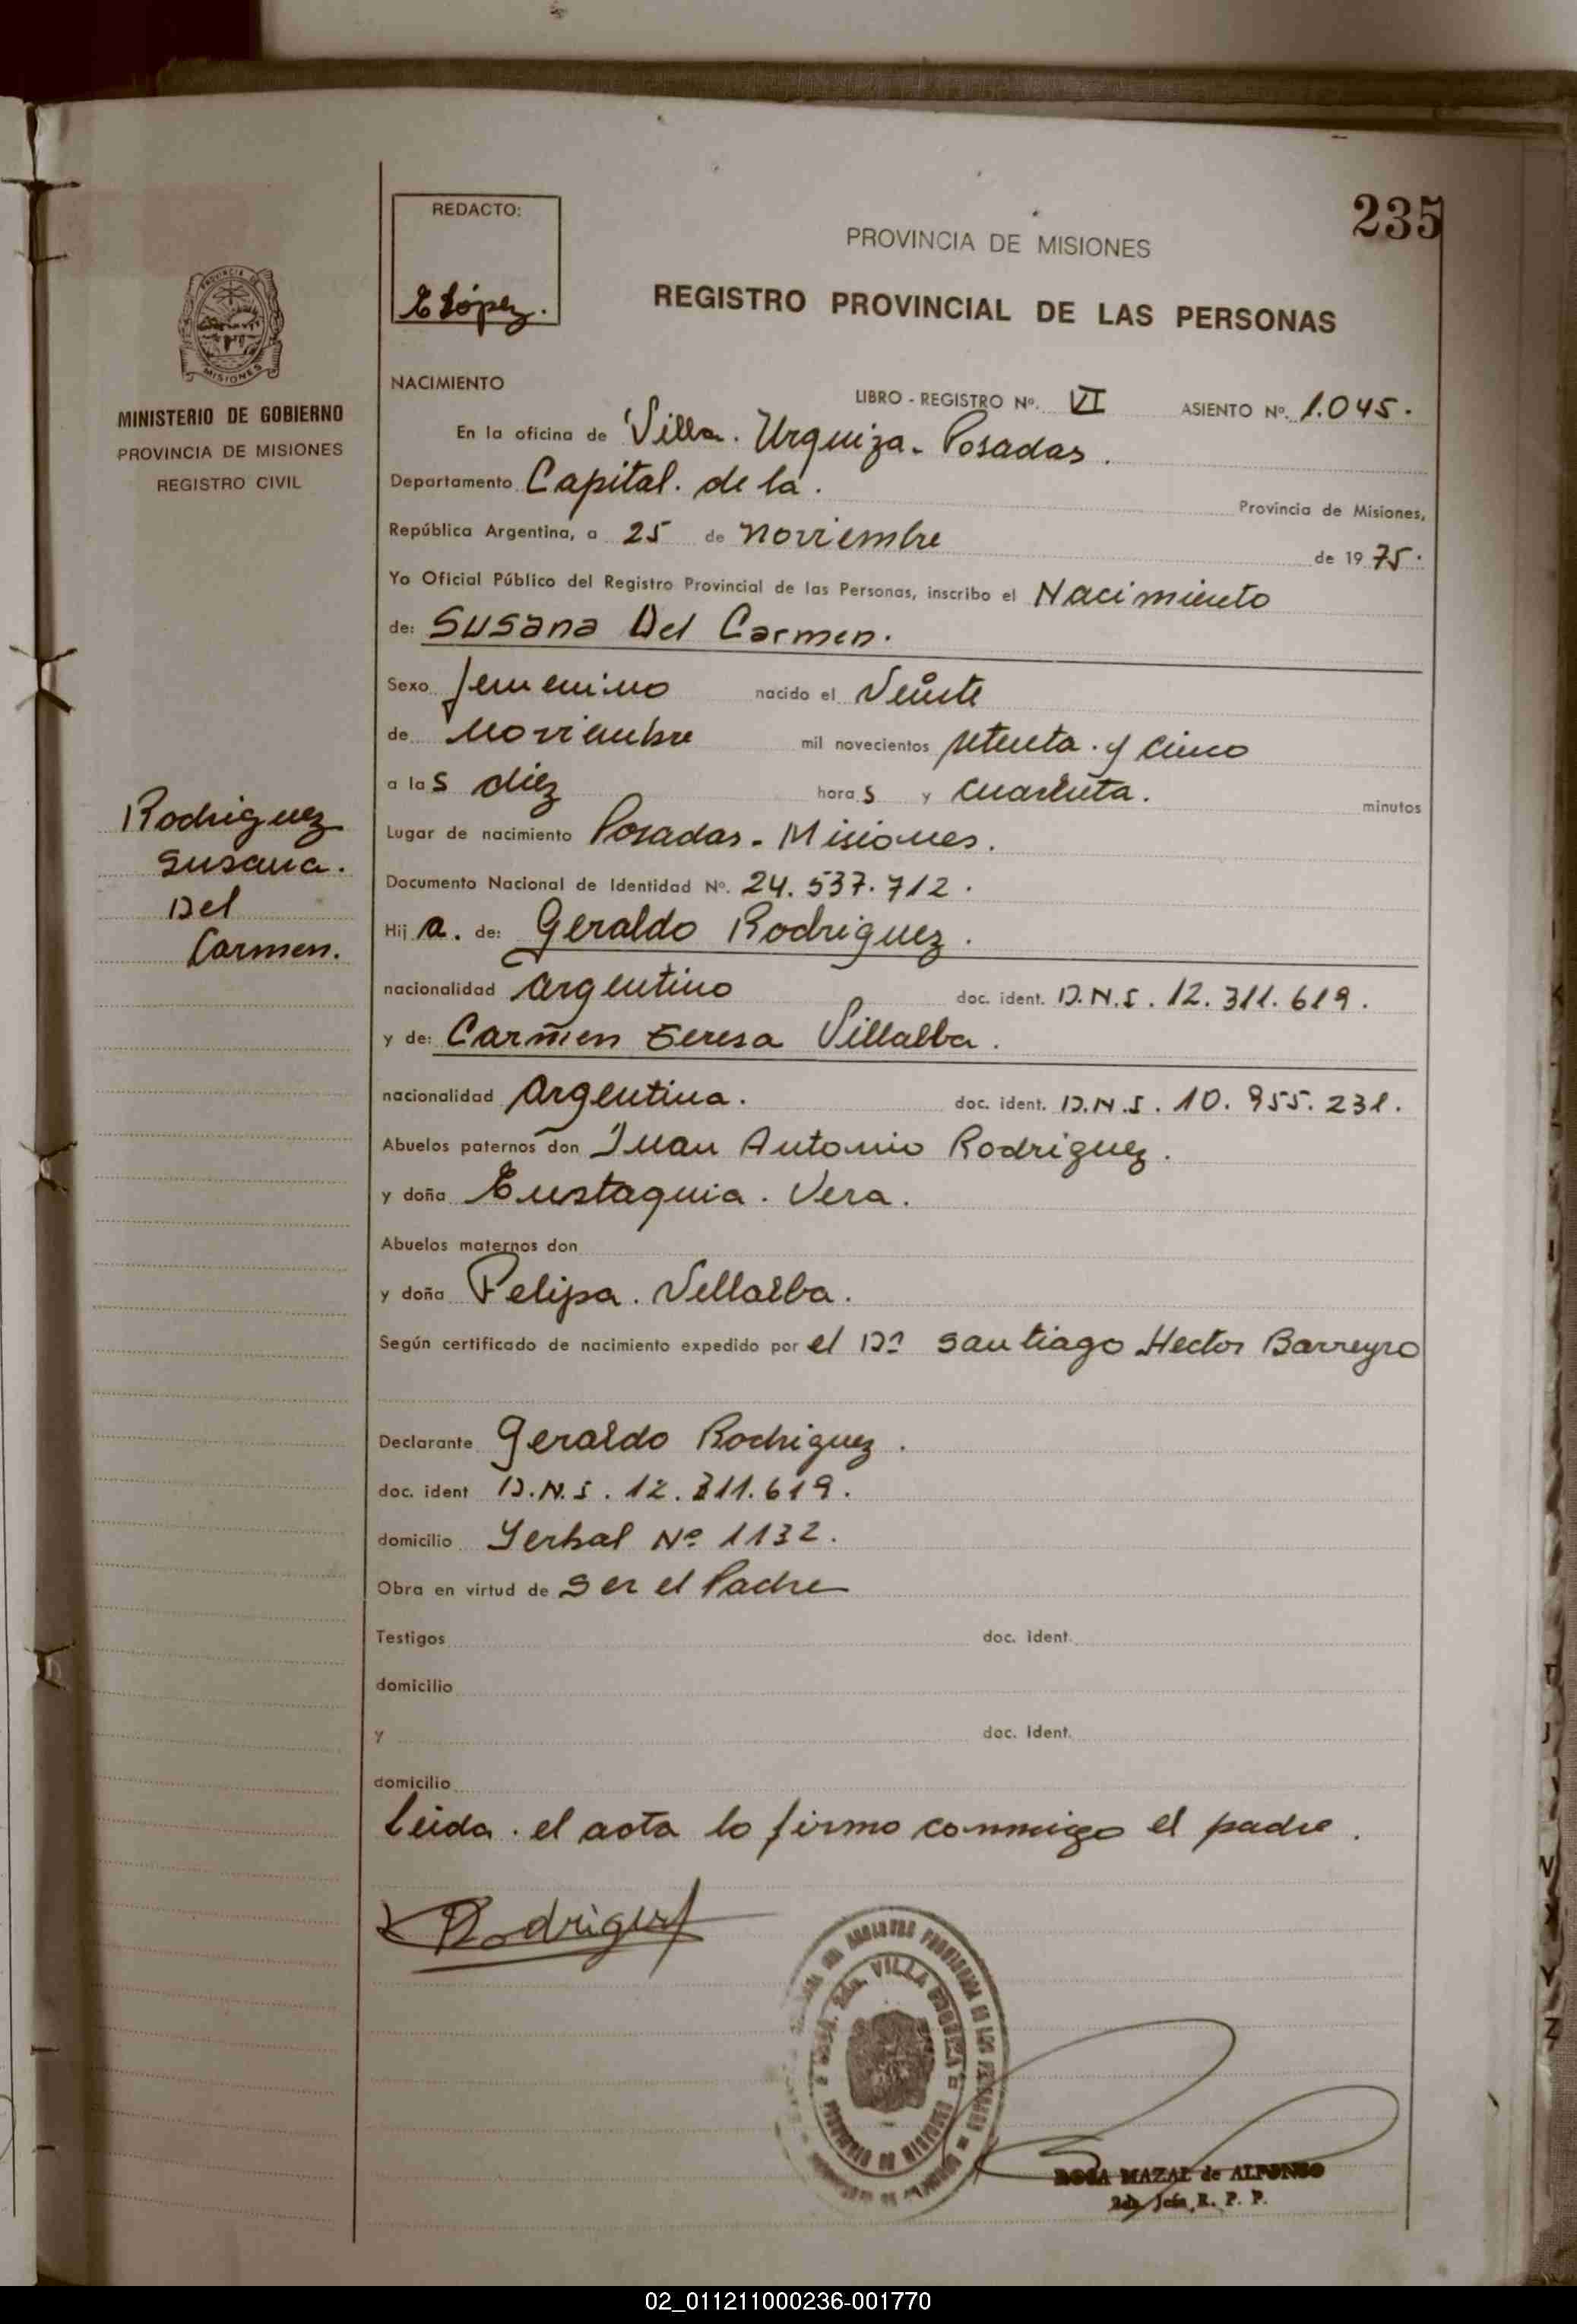 235
REDACTO:
E López.
PROVINCIA DE MISIONES
REGISTRO PROVINCIAL DE LAS PERSONAS
MISIONES
MINISTERIO DE GOBIERNO
PROVINCIA DE MISIONES
REGISTRO CIVIL
NACIMIENTO
LIBRO - REGISTRO Nº. VI ASIENTO Nº. 1.045.
En la oficina de Villa. Urquiza. Posadas.
Departamento Capital. de la. Provincia de Misiones,
República Argentina, a 25 de Noviembre de 19 75.
Yo Oficial Público del Registro Provincial de las Personas, inscribo el Nacimiento
de: Susana Del Carmen.
Sexo femenino nacido el Veinte
de Noviembre mil novecientos setenta. y cinco
a las diez horas y cuarenta. minutos
Rodriguez
Susana.
Del
Carmen.
Lugar de nacimiento Posadas. Misiones.
Documento Nacional de Identidad Nº. 24.537.712.
Hija. de: Geraldo Rodriguez.
nacionalidad argentino doc. ident. D.N.I. 12.311.619.
y de: Carmen Teresa Villalba.
nacionalidad Argentina. doc. ident. D.N.I. 10.955.231.
Abuelos paternos don Juan Antonio Rodriguez.
y doña Eustaquia. Vera.
Abuelos maternos don
y doña Felipa. Villalba.
Según certificado de nacimiento expedido por el Dr Santiago Hector Barreyro
Declarante Geraldo Rodriguez.
doc. ident D.N.I. 12.311.619.
domicilio Yerbal Nº 1132.
Obra en virtud de Ser el Padre
Testigos doc. ident.
domicilio
y doc. ident.
domicilio
Leida. el acta lo firmo conmigo el padre.
Rodriguez
VILLA URQUIZA
ROSA MAZAL de ALFONSO
2da. Jefa R. P. P.
02_011211000236-001770